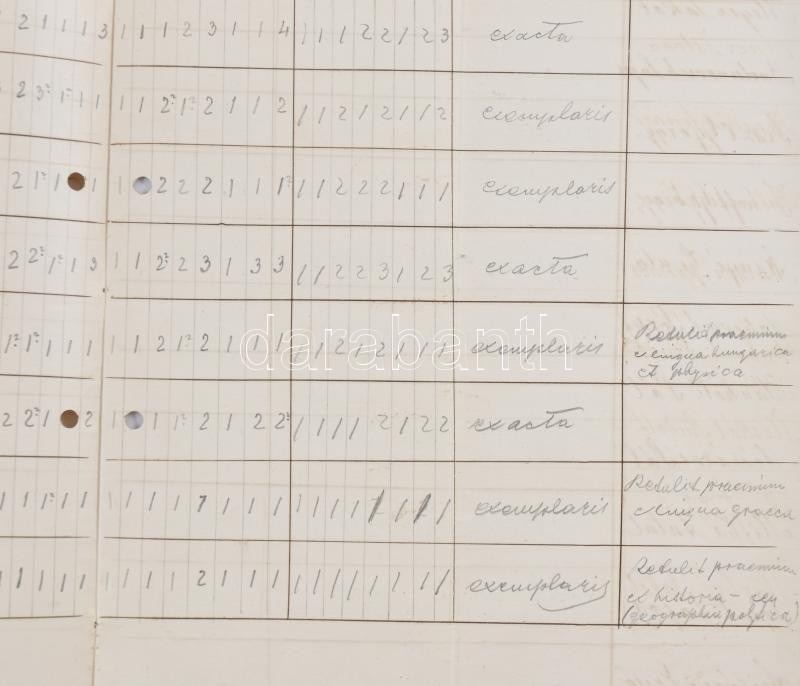 2 1 1 1 3 1 1 1 2 3 1 1 4 1 1 1 2 2 1 2 3 exacta
2 3 1 1 1 1 1 2 1 2 1 1 2 1 1 2 1 2 1 1 2 exemplaris
2 1 1 1 1 2 2 2 1 1 1 1 1 2 2 2 1 1 1 exemplaris
2 2 1 1 3 1 1 2 2 3 1 3 3 1 1 2 2 3 1 2 3 exacta
1 1 1 1 1 1 1 2 1 2 1 1 1 1 1 2 1 2 1 1 1 exemplaris
Retulit praemium
e lingua hungarica
et physica
2 2 1 2 1 1 1 2 1 2 2 1 1 1 1 2 1 2 2 exacta
1 1 1 1 1 1 1 1 1 1 1 1 1 1 1 1 1 1 1 1 1 exemplaris
Retulit praemium
e lingua graeca
1 1 1 1 1 1 1 1 1 2 1 1 1 1 1 1 1 1 1 1 1 exemplaris
Retulit praemium
ex historia –
(geographia politica)
darabanth